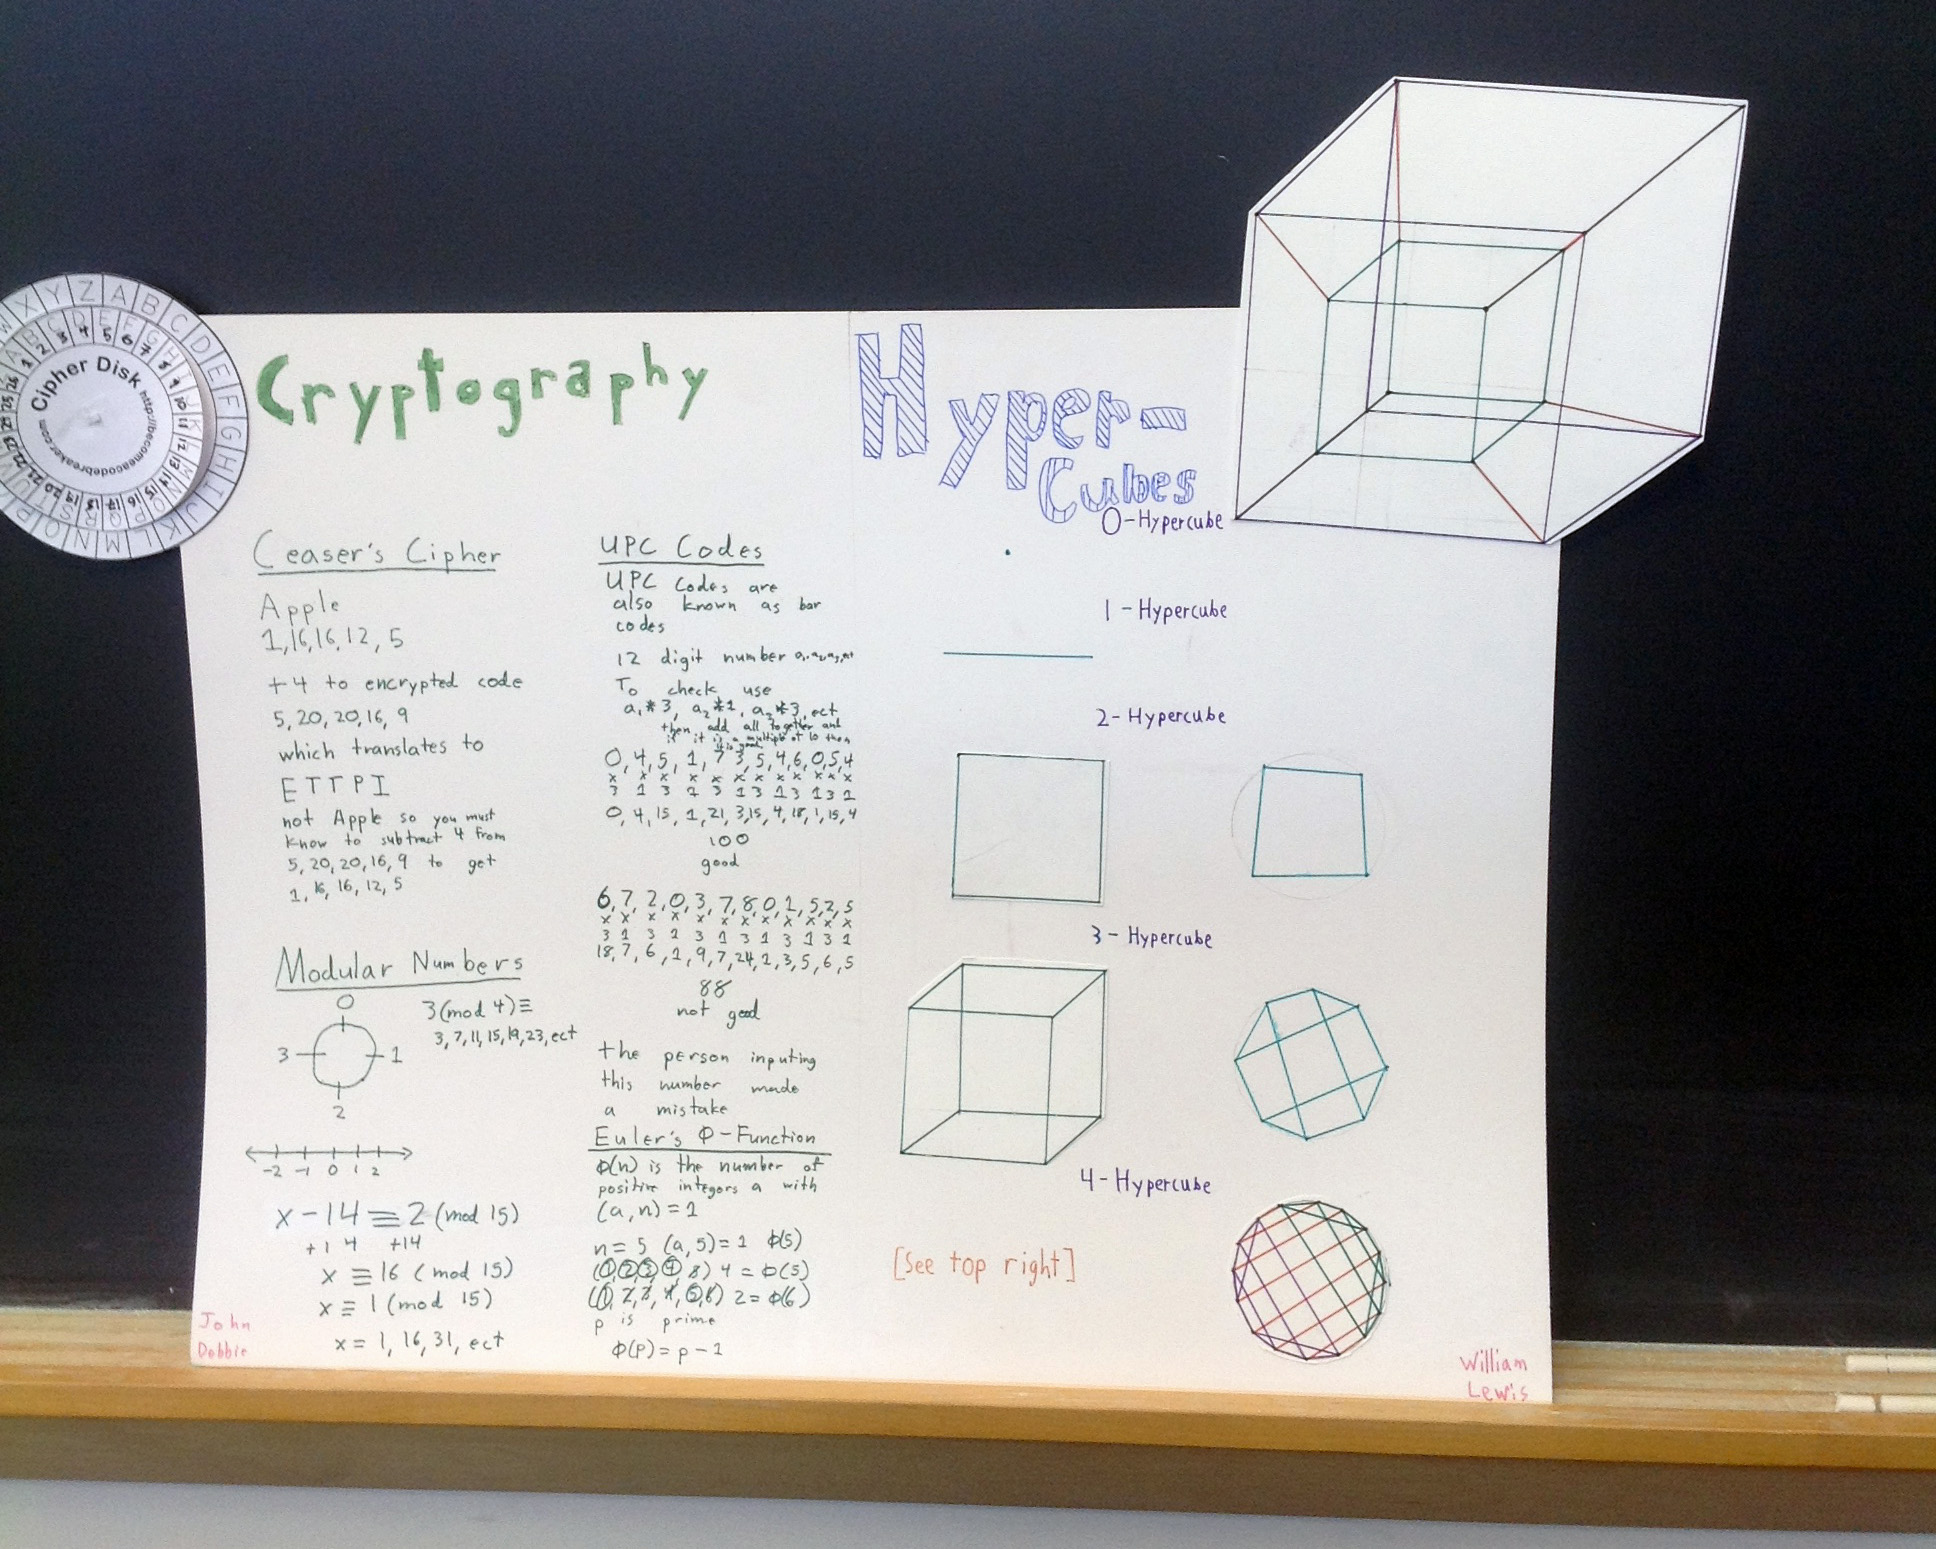 Cipher Disk
http://becomeacodebreaker.com
Cryptography
Ceaser's Cipher
Apple
1,16,16,12,5
+4 to encrypted code
5,20,20,16,9
which translates to
ETTPI
not Apple so you must
know to subtract 4 from
5,20,20,16,9 to get
1,16,16,12,5
Modular Numbers
0
3 1
2
3(mod 4)≡
3,7,11,15,19,23,ect
-2 -1 0 1 2
x-14≡2(mod 15)
+14 +14
x≡16(mod 15)
x≡1(mod 15)
x=1,16,31,ect
John
Debbie
UPC Codes
UPC Codes are
also known as bar
codes
12 digit number
To check use
a₁*3, a₂*1, a₂*3, ect
then add all together and
if it is a multiple of 10 then
it is good
0,4,5,1,7,3,5,4,6,0,5,4
x x x x x x x x x x x x
3 1 3 1 3 1 3 1 3 1 3 1
0,4,15,1,21,3,15,4,18,1,15,4
100
good
6,7,2,0,3,7,8,0,1,5,2,5
x x x x x x x x x x x x
3 1 3 1 3 1 3 1 3 1 3 1
18,7,6,1,9,7,24,1,3,5,6,5
88
not good
the person inputing
this number made
a mistake
Euler's Φ-Function
Φ(n) is the number of
positive integers a with
(a,n)=1
n=5 (a,5)=1 Φ(5)
(1,2,3,4,8) 4=Φ(5)
(1,2,3,4,5,6) 2=Φ(6)
p is prime
Φ(p)=p-1
Hyper-
Cubes
0-Hypercube
1-Hypercube
2-Hypercube
3-Hypercube
4-Hypercube
[See top right]
William
Lewis